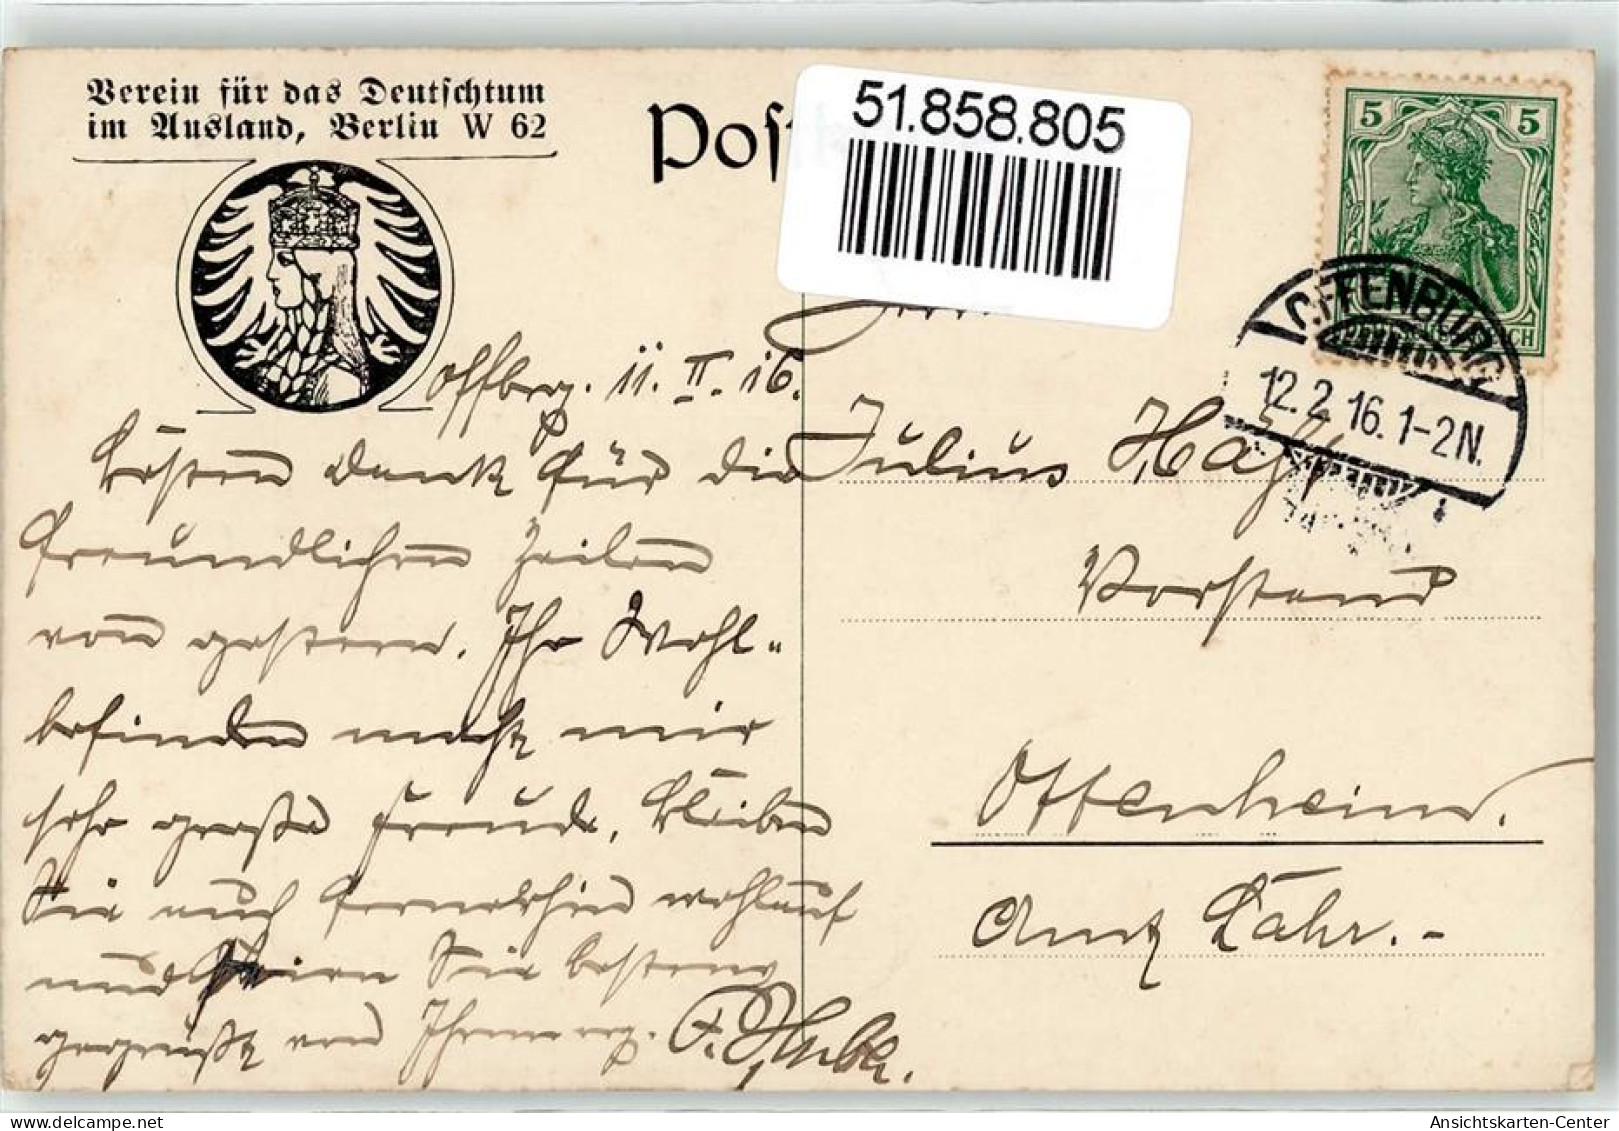 Verein für das Deutschtum
im Ausland, Berlin W 62
Post
51.858.805
5 5
OFFENBURG
12.2.16.1-2N.
Offbrg. 11. II. 16.
Besten Dank für die
freundlichen Zeilen
von gestern. Ihr Wohl-
befinden macht mir
sehr große Freude, bleiben
Sie auch fernerhin wohlauf
und seien Sie bestens
gegrüßt von Ihrem erg.
Herrn
Julius
Vorstand
Ottenheim.
Amt Lahr.-
Ansichtskarten-Center